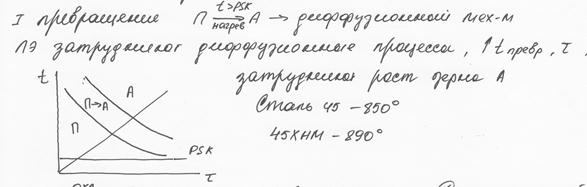 I превращение П t>PSK нагрев А → диффузионный мех-м
ЛЭ затрудняют диффузионные процессы, ↑ t превр, τ,
затрудняют рост зерна А
Сталь 45 – 850°
45ХНМ – 890°
t
А
П→А
П
PSK
τ